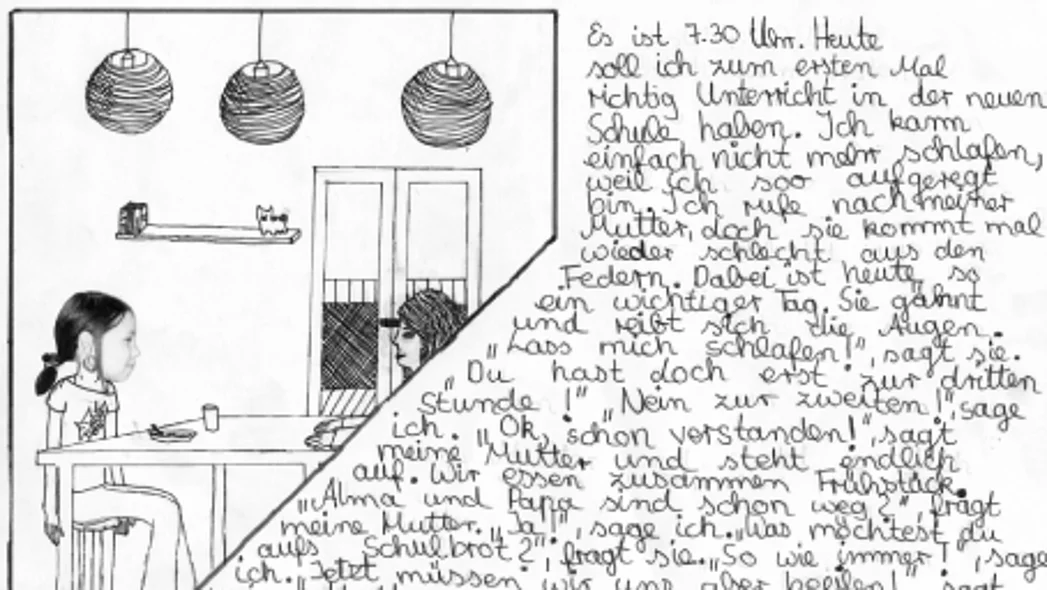 Es ist 7.30 Uhr. Heute
soll ich zum ersten Mal
richtig Unterricht in der neuen
Schule haben. Ich kann
einfach nicht mehr schlafen,
weil ich soo aufgeregt
bin. Ich rufe nach meiner
Mutter, doch sie kommt mal
wieder schlecht aus den
Federn. Dabei ist heute so
ein wichtiger Tag. Sie gähnt
und reibt sich die Augen.
„Lass mich schlafen!", sagt sie.
„Du hast doch erst zur dritten
Stunde!" „Nein zur zweiten!", sage
ich. „Ok, schon verstanden!", sagt
meine Mutter und steht endlich
auf. Wir essen zusammen Frühstück.
„Alma und Papa sind schon weg?", fragt
meine Mutter. „Ja!", sage ich. „Was möchtest du
aufs Schulbrot?", fragt sie. „So wie immer!", sage
ich. „Jetzt müssen wir uns aber beeilen!", sagt